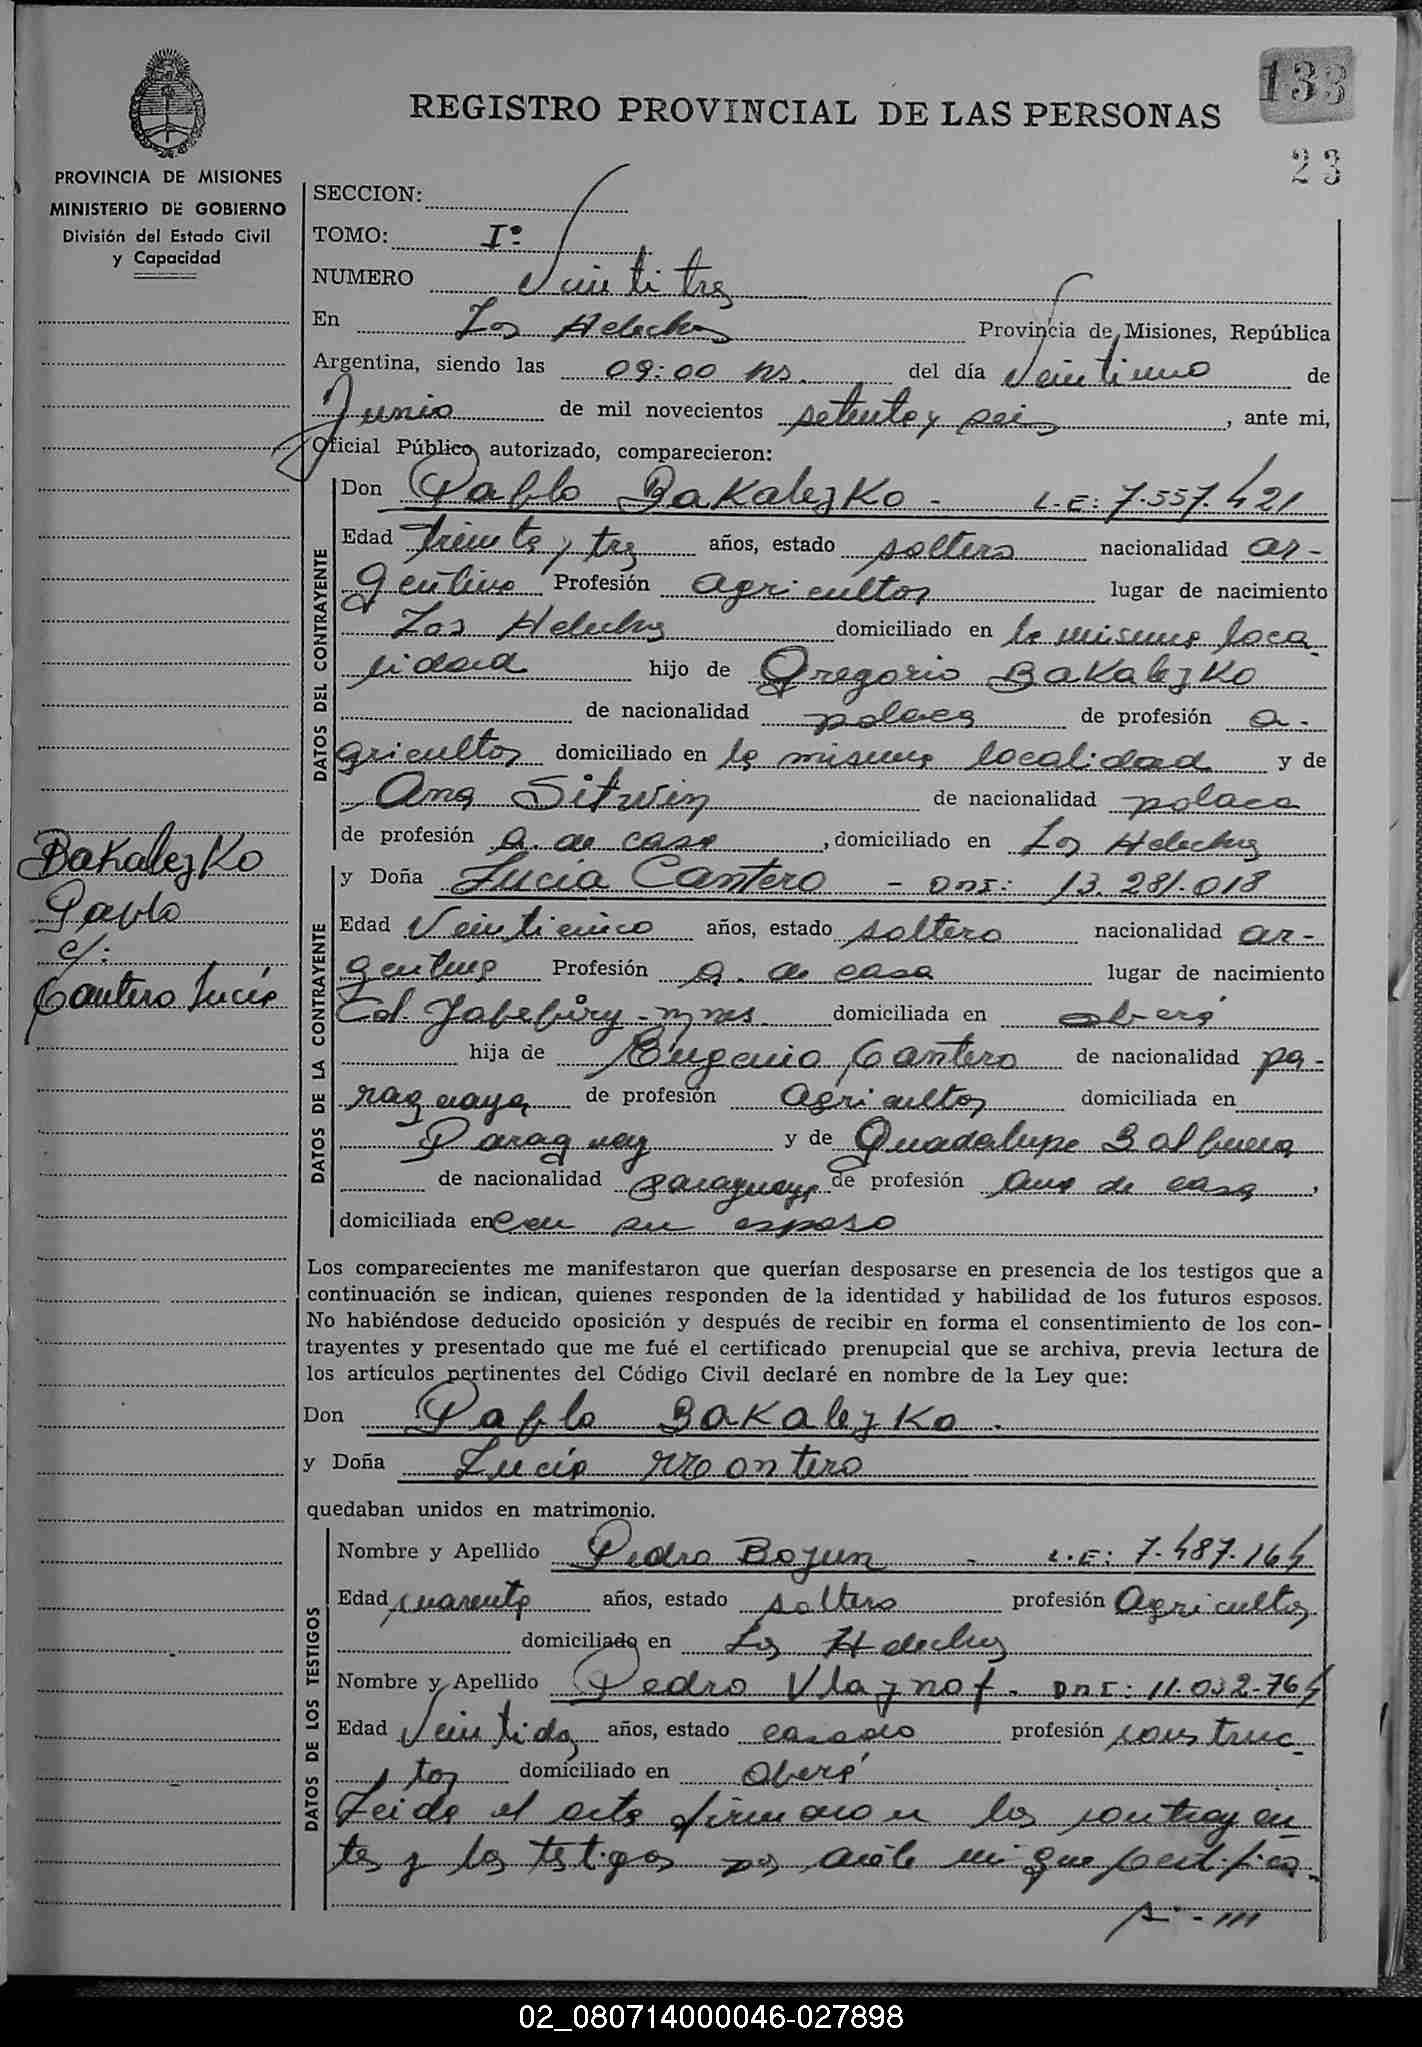 133
REGISTRO PROVINCIAL DE LAS PERSONAS
23
PROVINCIA DE MISIONES
MINISTERIO DE GOBIERNO
División del Estado Civil
y Capacidad
SECCION:
TOMO: Iº
NUMERO Veintitres
En Los Helechos Provincia de Misiones, República
Argentina, siendo las 09:00 hs. del día Veintiuno de
Junio de mil novecientos setenta y seis, ante mi,
Oficial Público autorizado, comparecieron:
DATOS DEL CONTRAYENTE
Don Pablo Bakalezko - L.E: 7.557.421
Edad treinta y tres años, estado soltero nacionalidad ar-
gentino Profesión agricultor lugar de nacimiento
Los Helechos domiciliado en la misma loca-
lidad hijo de Gregorio Bakalezko
de nacionalidad polaca de profesión a-
gricultor domiciliado en la misma localidad y de
Ana Sitwin de nacionalidad polaca
de profesión a. de casa, domiciliado en Los Helechos
Bakalezko
Pablo
c/:
Cantero Lucía
DATOS DE LA CONTRAYENTE
y Doña Lucia Cantero - DNI: 13.281.018
Edad Veinticinco años, estado soltera nacionalidad ar-
gentina Profesión a. de casa lugar de nacimiento
Col. Yabebiry - Mnes. domiciliada en oberá
hija de Eugenio Cantero de nacionalidad pa-
raguaya de profesión agricultor domiciliada en
Paraguay y de Guadalupe Balbuena
de nacionalidad paraguaya de profesión ama de casa,
domiciliada en con su esposo
Los comparecientes me manifestaron que querían desposarse en presencia de los testigos que a
continuación se indican, quienes responden de la identidad y habilidad de los futuros esposos.
No habiéndose deducido oposición y después de recibir en forma el consentimiento de los con-
trayentes y presentado que me fué el certificado prenupcial que se archiva, previa lectura de
los artículos pertinentes del Código Civil declaré en nombre de la Ley que:
Don Pablo Bakalezko.
y Doña Lucía Montero
quedaban unidos en matrimonio.
DATOS DE LOS TESTIGOS
Nombre y Apellido Pedro Bozun - L.E: 7.487.164
Edad cuarenta años, estado soltero profesión Agricultor
domiciliado en Los Helechos
Nombre y Apellido Pedro Vlaznof - DNI: 11.032.764
Edad Veintidos años, estado casado profesión construc-
tor domiciliado en Oberá
Leida el acta firmaron los contrayen
tes y los testigos por ante mi que certifico.